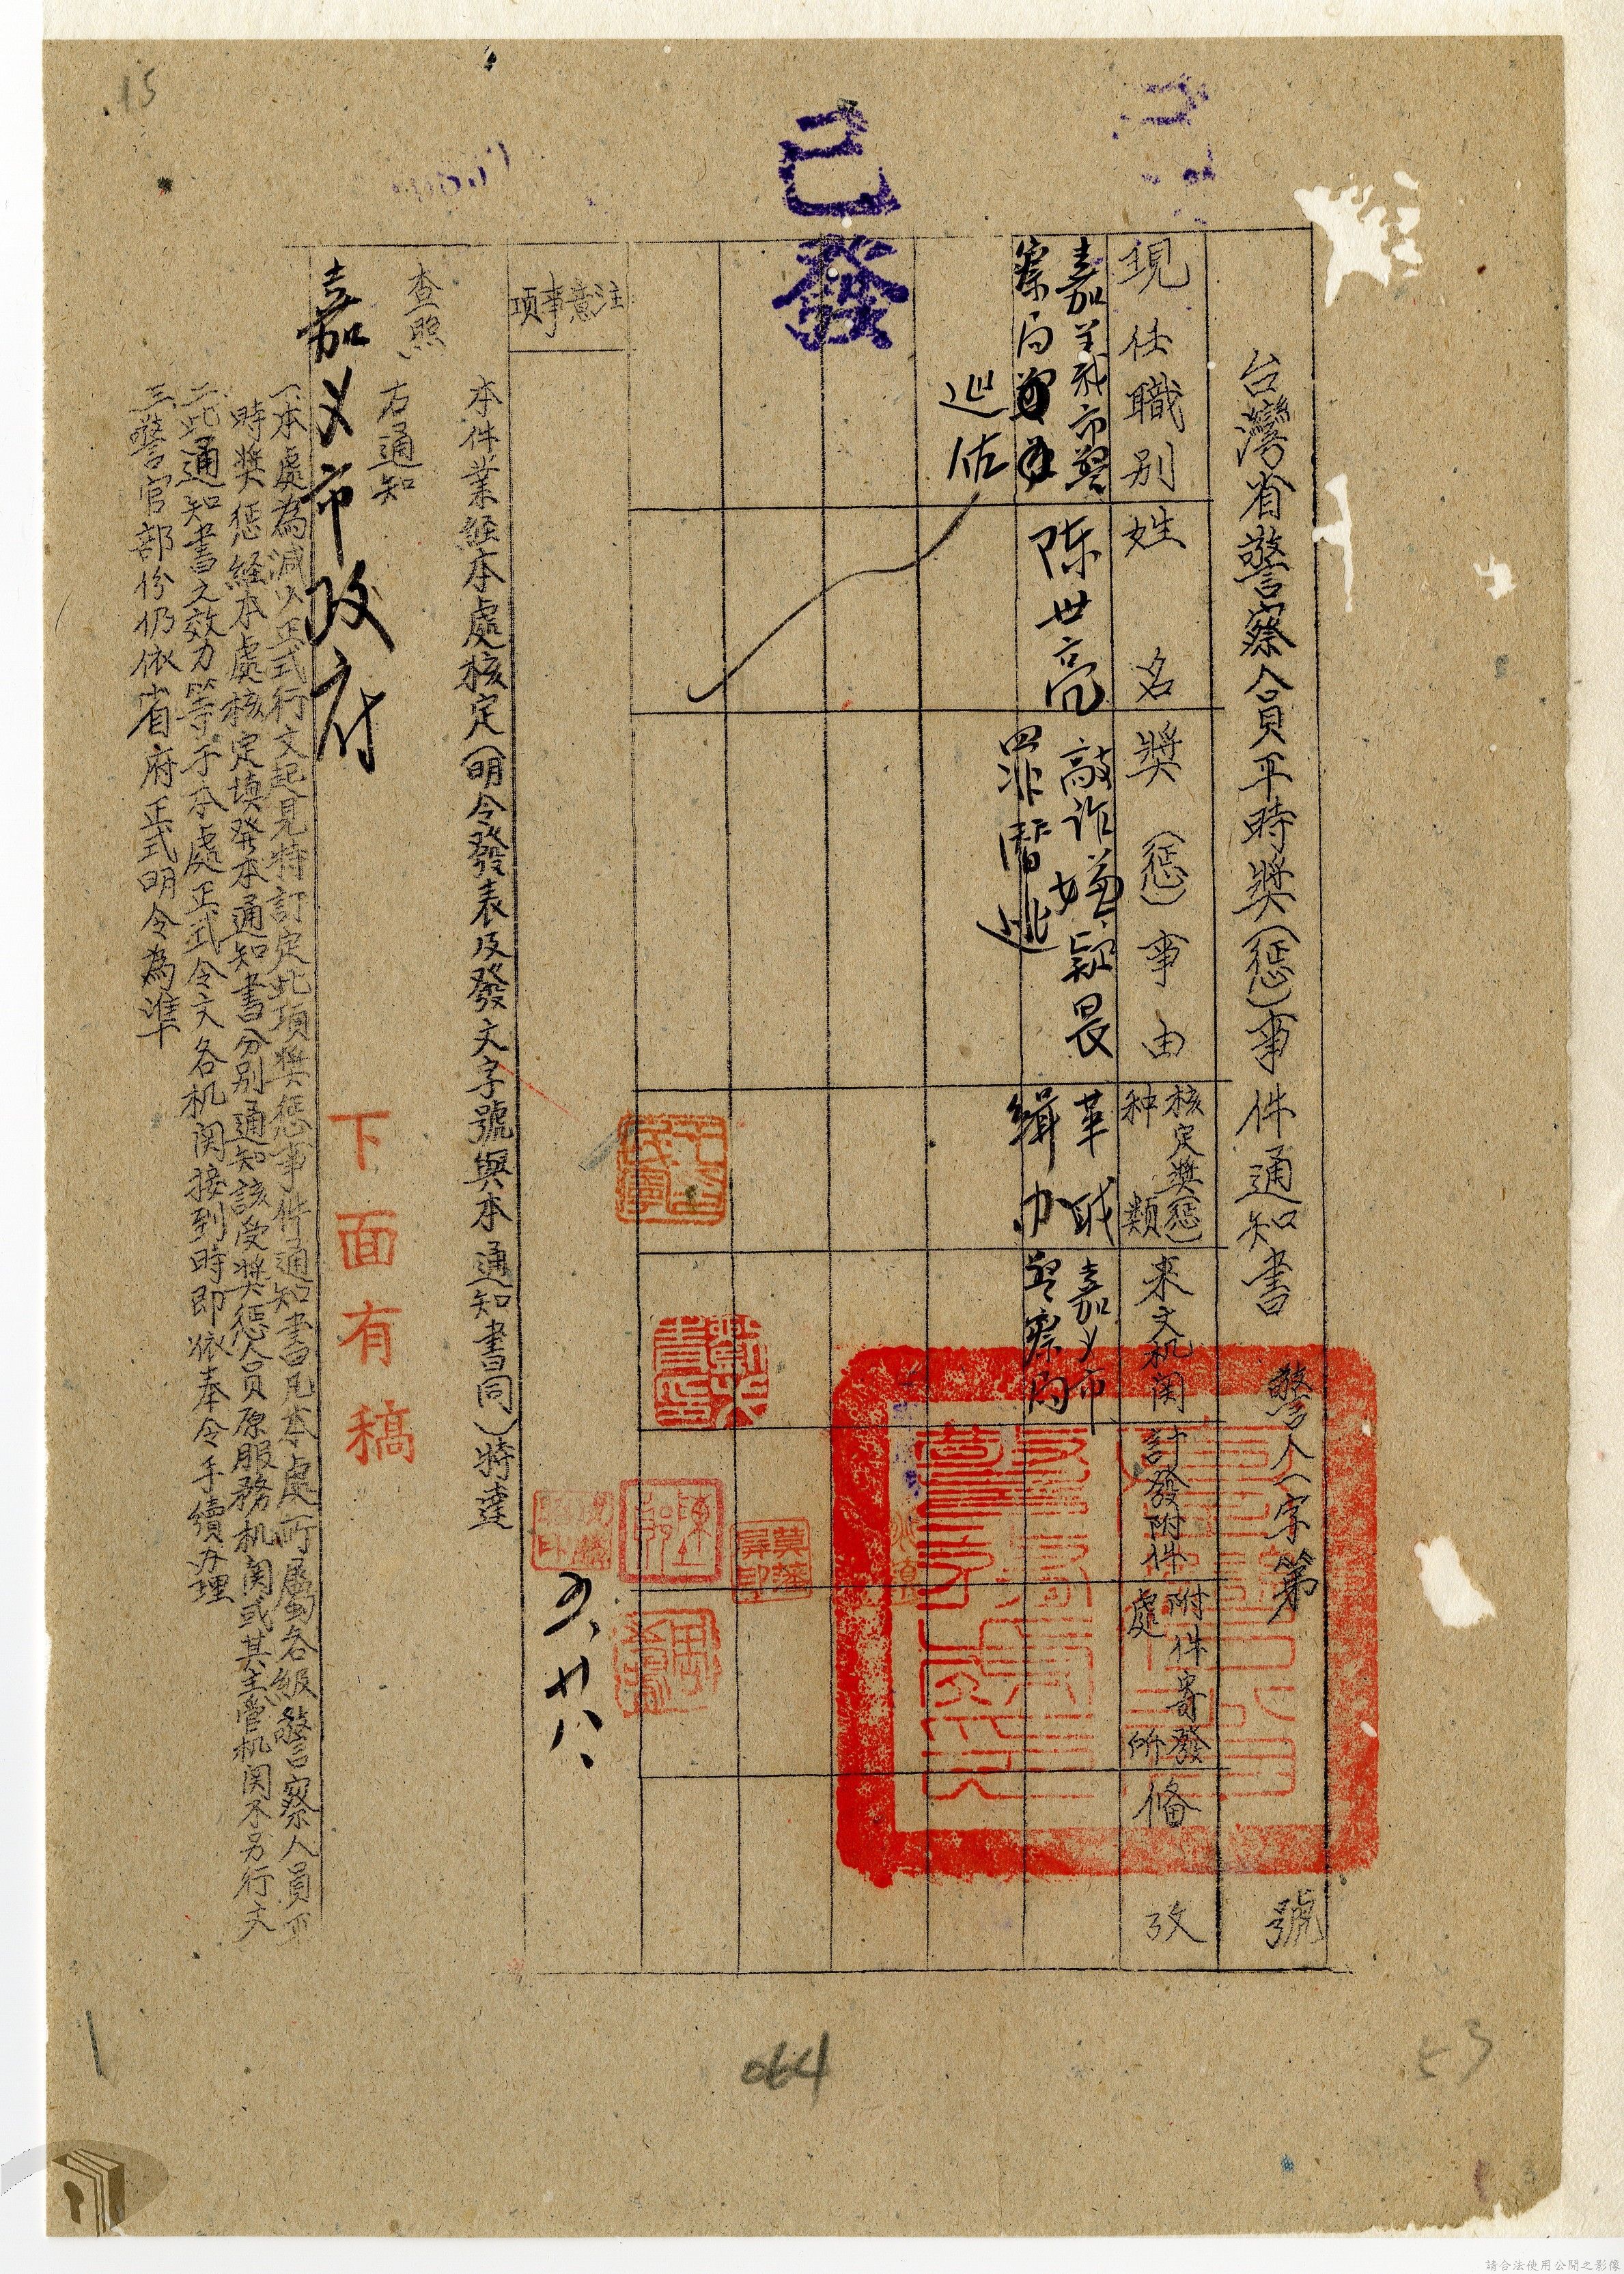 已發
台灣省警察人員平時獎(懲)事件通知書
警人(字第
號
現任職別
姓名
獎(懲)事由
核定獎(懲)
种類
来文机関
計發附件
附件寄發
處所
備攷
嘉義市警
察局
巡佐
陈世亮
敲诈嫌疑畏
罪暂逃
革职
缉办
嘉义市
警察局
注意事項
五、廿八、
本件業経本處核定(明令發表及發文字號與本通知書同)特達
查照
右通知
嘉义市政府
下面有稿
一、本處為减少正式行文起見特訂定此項獎懲事件通知書凡本處所屬各級警察人員平
時獎懲経本處核定填發本通知書分别通知該受獎懲人員原服務机関或其主管机関不另行文
二、此通知書之效力等于本處正式令文各机関接到時即依奉令手續办理
三、警官部份仍依省府正式明令為準
15
064
53
請合法使用公開之影像